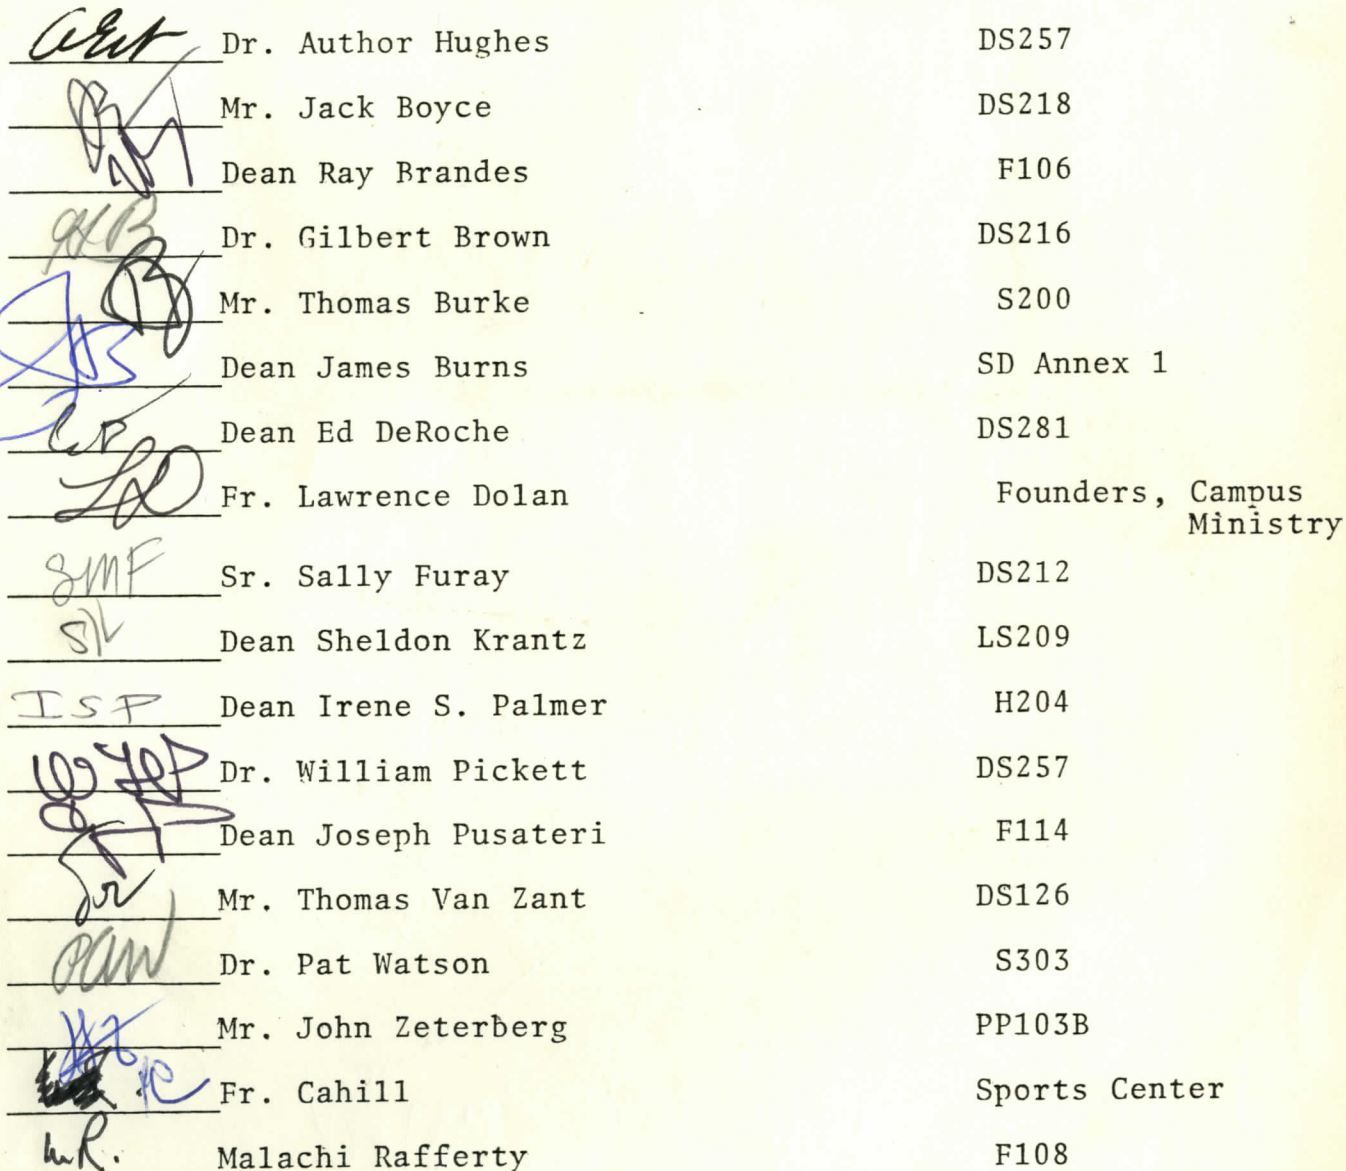 Dr. Author Hughes DS257
Mr. Jack Boyce DS218
Dean Ray Brandes F106
Dr. Gilbert Brown DS216
Mr. Thomas Burke S200
Dean James Burns SD Annex 1
Dean Ed DeRoche DS281
Fr. Lawrence Dolan Founders, Campus
Ministry
SMF Sr. Sally Furay DS212
SK Dean Sheldon Krantz LS209
ISP Dean Irene S. Palmer H204
Dr. William Pickett DS257
Dean Joseph Pusateri F114
Mr. Thomas Van Zant DS126
PAW Dr. Pat Watson S303
Mr. John Zeterberg PP103B
Fr. Cahill Sports Center
M.R. Malachi Rafferty F108